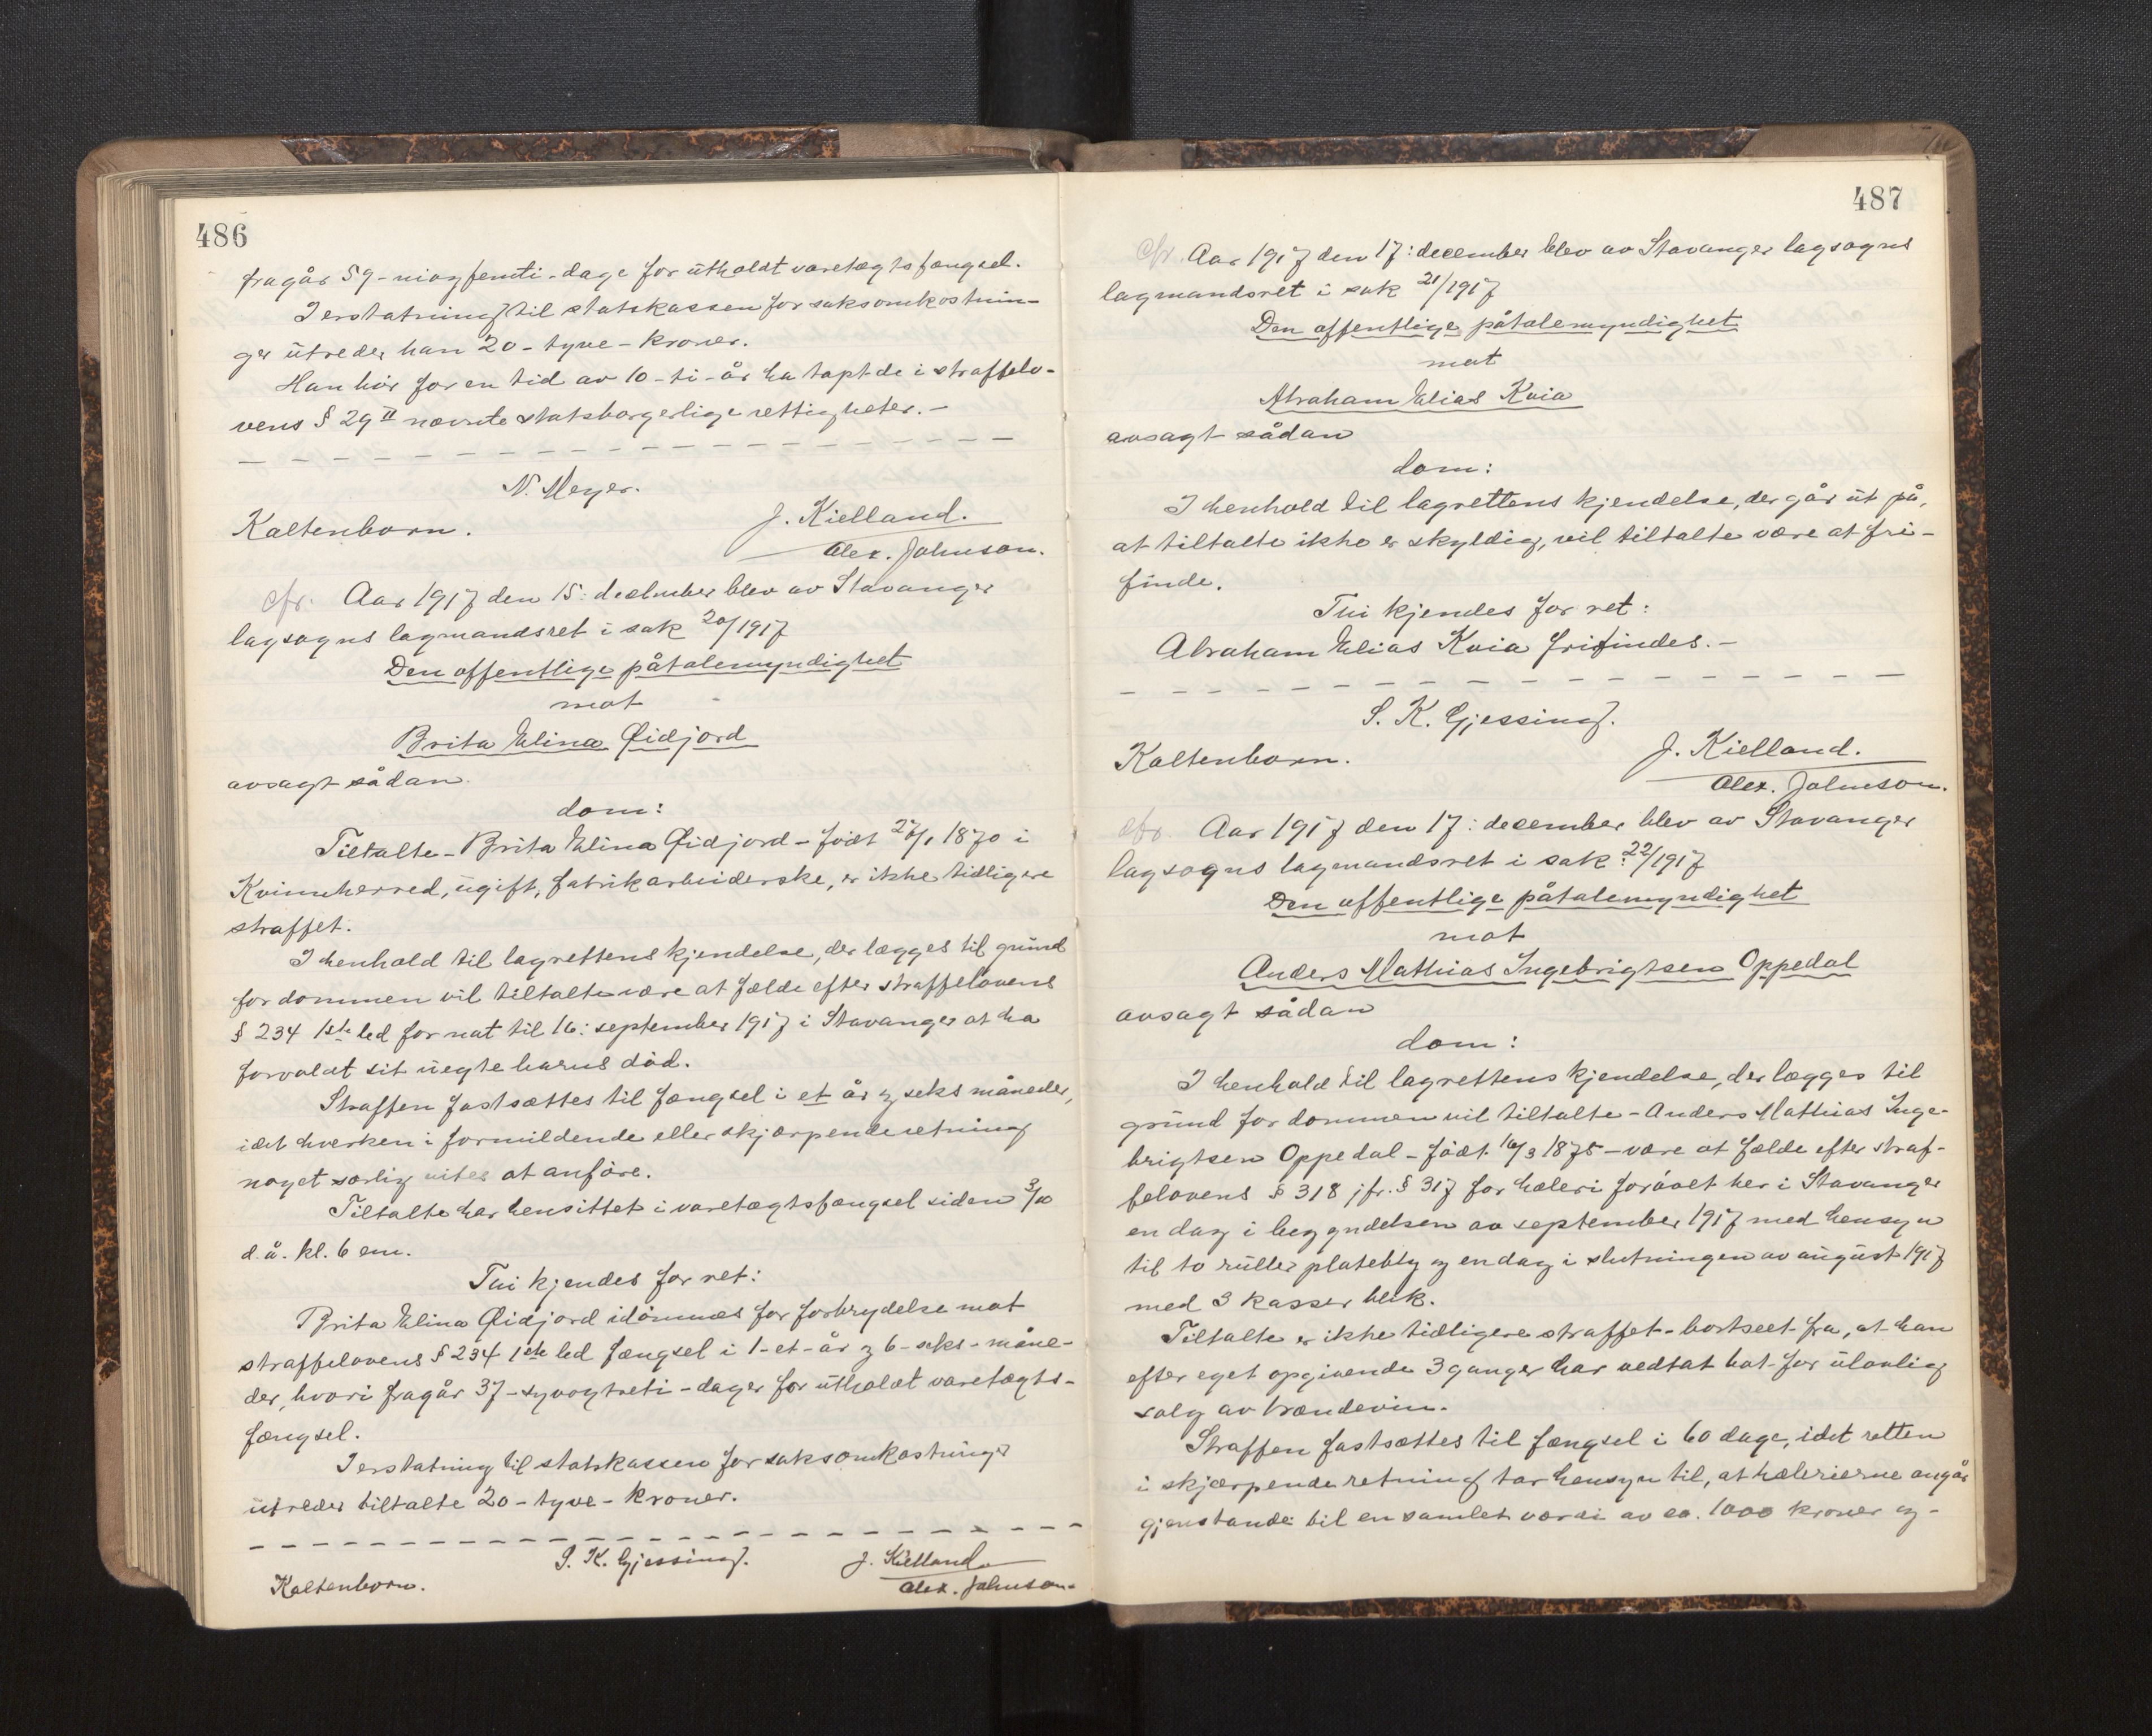 486
fragår 59-niogfemti-dage for utholdt varetægtsfængsel.
I erstatning til statskassen for saksomkostnin-
ger utreder han 20-tyve-kroner.
Han bør for en tid av 10-ti-år ha tapt de i straffelo-
vens § 29 II nævnte statsborgerlige rettigheter.-
N. Meyer.
Kaltenborn.
J. Kielland.
Alex. Johnson.
cfr. Aar 1917 den 15: december blev av Stavanger
lagsogns lagmandsret i sak 20/1917
Den offentlige påtalemyndighet
mot
Brita Elina Øidjord
avsagt sådan
dom:
Tiltalte-Brita Elina Øidjord-født 1870 i
Kvinnherred, ugift, fabrikarbeiderske, er ikke tidligere
straffet.
I henhold til lagrettens kjendelse, der lægges til grund
for dommen vil tiltalte være at fælde efter straffelovens
§ 234 1ste led for nat til 16: september 1917 i Stavanger at ha
forvoldt sit uegte barns død.
Straffen fastsættes til fængsel i et år og seks måneder,
idet hverken i formildende eller skjærpende retning
noget særlig vites at anføre.
Tiltalte har hensittet i varetægtsfængsel siden 3/10
d.å. kl. 6 em.
Thi kjendes for ret:
Brita Elina Øidjord idømmes for forbrydelse mot
straffelovens § 234 1ste led fængsel i 1-et-år og 6-seks-måne-
der, hvori fragår 37-syvogtreti-dager for utholdt varetægts-
fængsel.
I erstatning til statskassen for saksomkostninger
utreder tiltalte 20-tyve-kroner.
S. K. Gjessing.
J. Kielland
Kaltenborn.
Alex. Johnson.
487
cfr. Aar 1917 den 17: december blev av Stavanger lagsogns
lagmandsret i sak 21/1917
Den offentlige påtalemyndighet
mot
Abraham Elias Kvia
avsagt sådan
dom:
I henhold til lagrettens kjendelse, der går ut på,
at tiltalte ikke er skyldig, vil tiltalte være at fri-
finde.
Thi kjendes for ret:
Abraham Elias Kvia frifindes.-
S. K. Gjessing.
Kaltenborn.
J. Kielland.
Alex. Johnson.
cfr. Aar 1917 den 17: december blev av Stavanger
lagsogns lagmandsret i sak: 22/1917
Den offentlige påtalemyndighet
mot
Anders Mathias Ingebrigtsen Oppedal
avsagt sådan
dom:
I henhold til lagrettens kjendelse, der lægges til
grund for dommen vil tiltalte-Anders Mathias Inge-
brigtsen Oppedal-født 16/3 1875-være at fælde efter straf-
felovens § 318 jfr. § 317 for hæleri forøvet her i Stavanger
en dag i begyndelsen av september 1917 med hensyn
til to ruller platebly og en dag i slutningen av august 1917
med 3 kasser blik.
Tiltalte er ikke tidligere straffet-bortseet fra, at han
efter eget opgivende 3 ganger har vedtat bot for ulovlig
salg av brændevin.
Straffen fastsættes til fængsel i 60 dage, idet retten
i skjærpende retning tar hensyn til, at hælerierne angår
gjenstande til en samlet værdi av ca. 1000 kroner og-